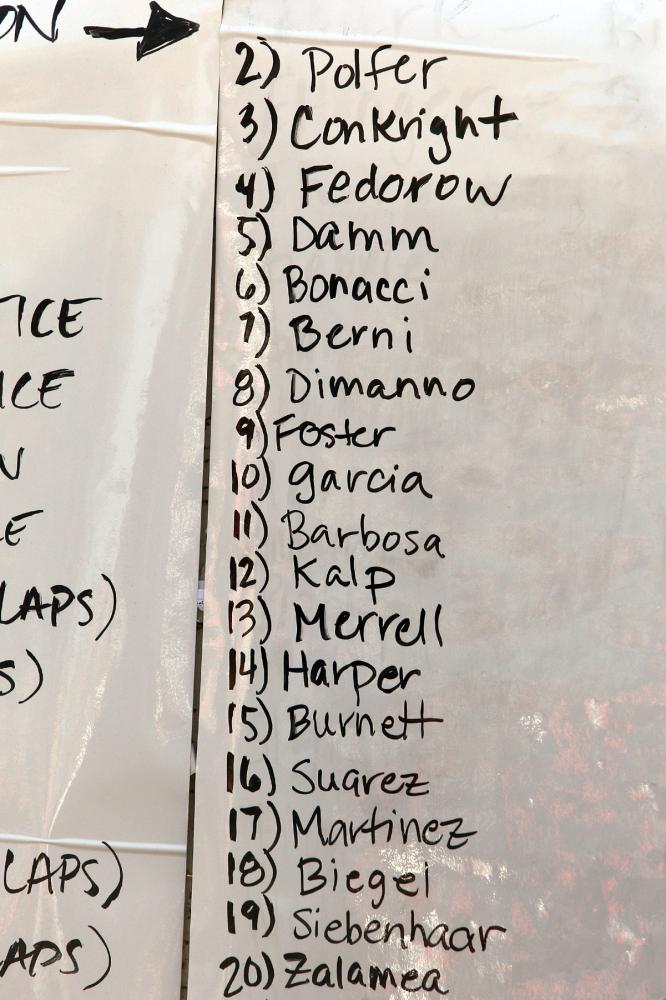 ON →
TICE
ICE
N
E
LAPS)
S)
(LAPS)
APS)
2) Polfer
3) Conkright
4) Fedorow
5) Damm
6) Bonacci
7) Berni
8) Dimanno
9) Foster
10) garcia
11) Barbosa
12) Kalp
13) Merrell
14) Harper
15) Burnett
16) Suarez
17) Martinez
18) Biegel
19) Siebenhaar
20) Zalamea